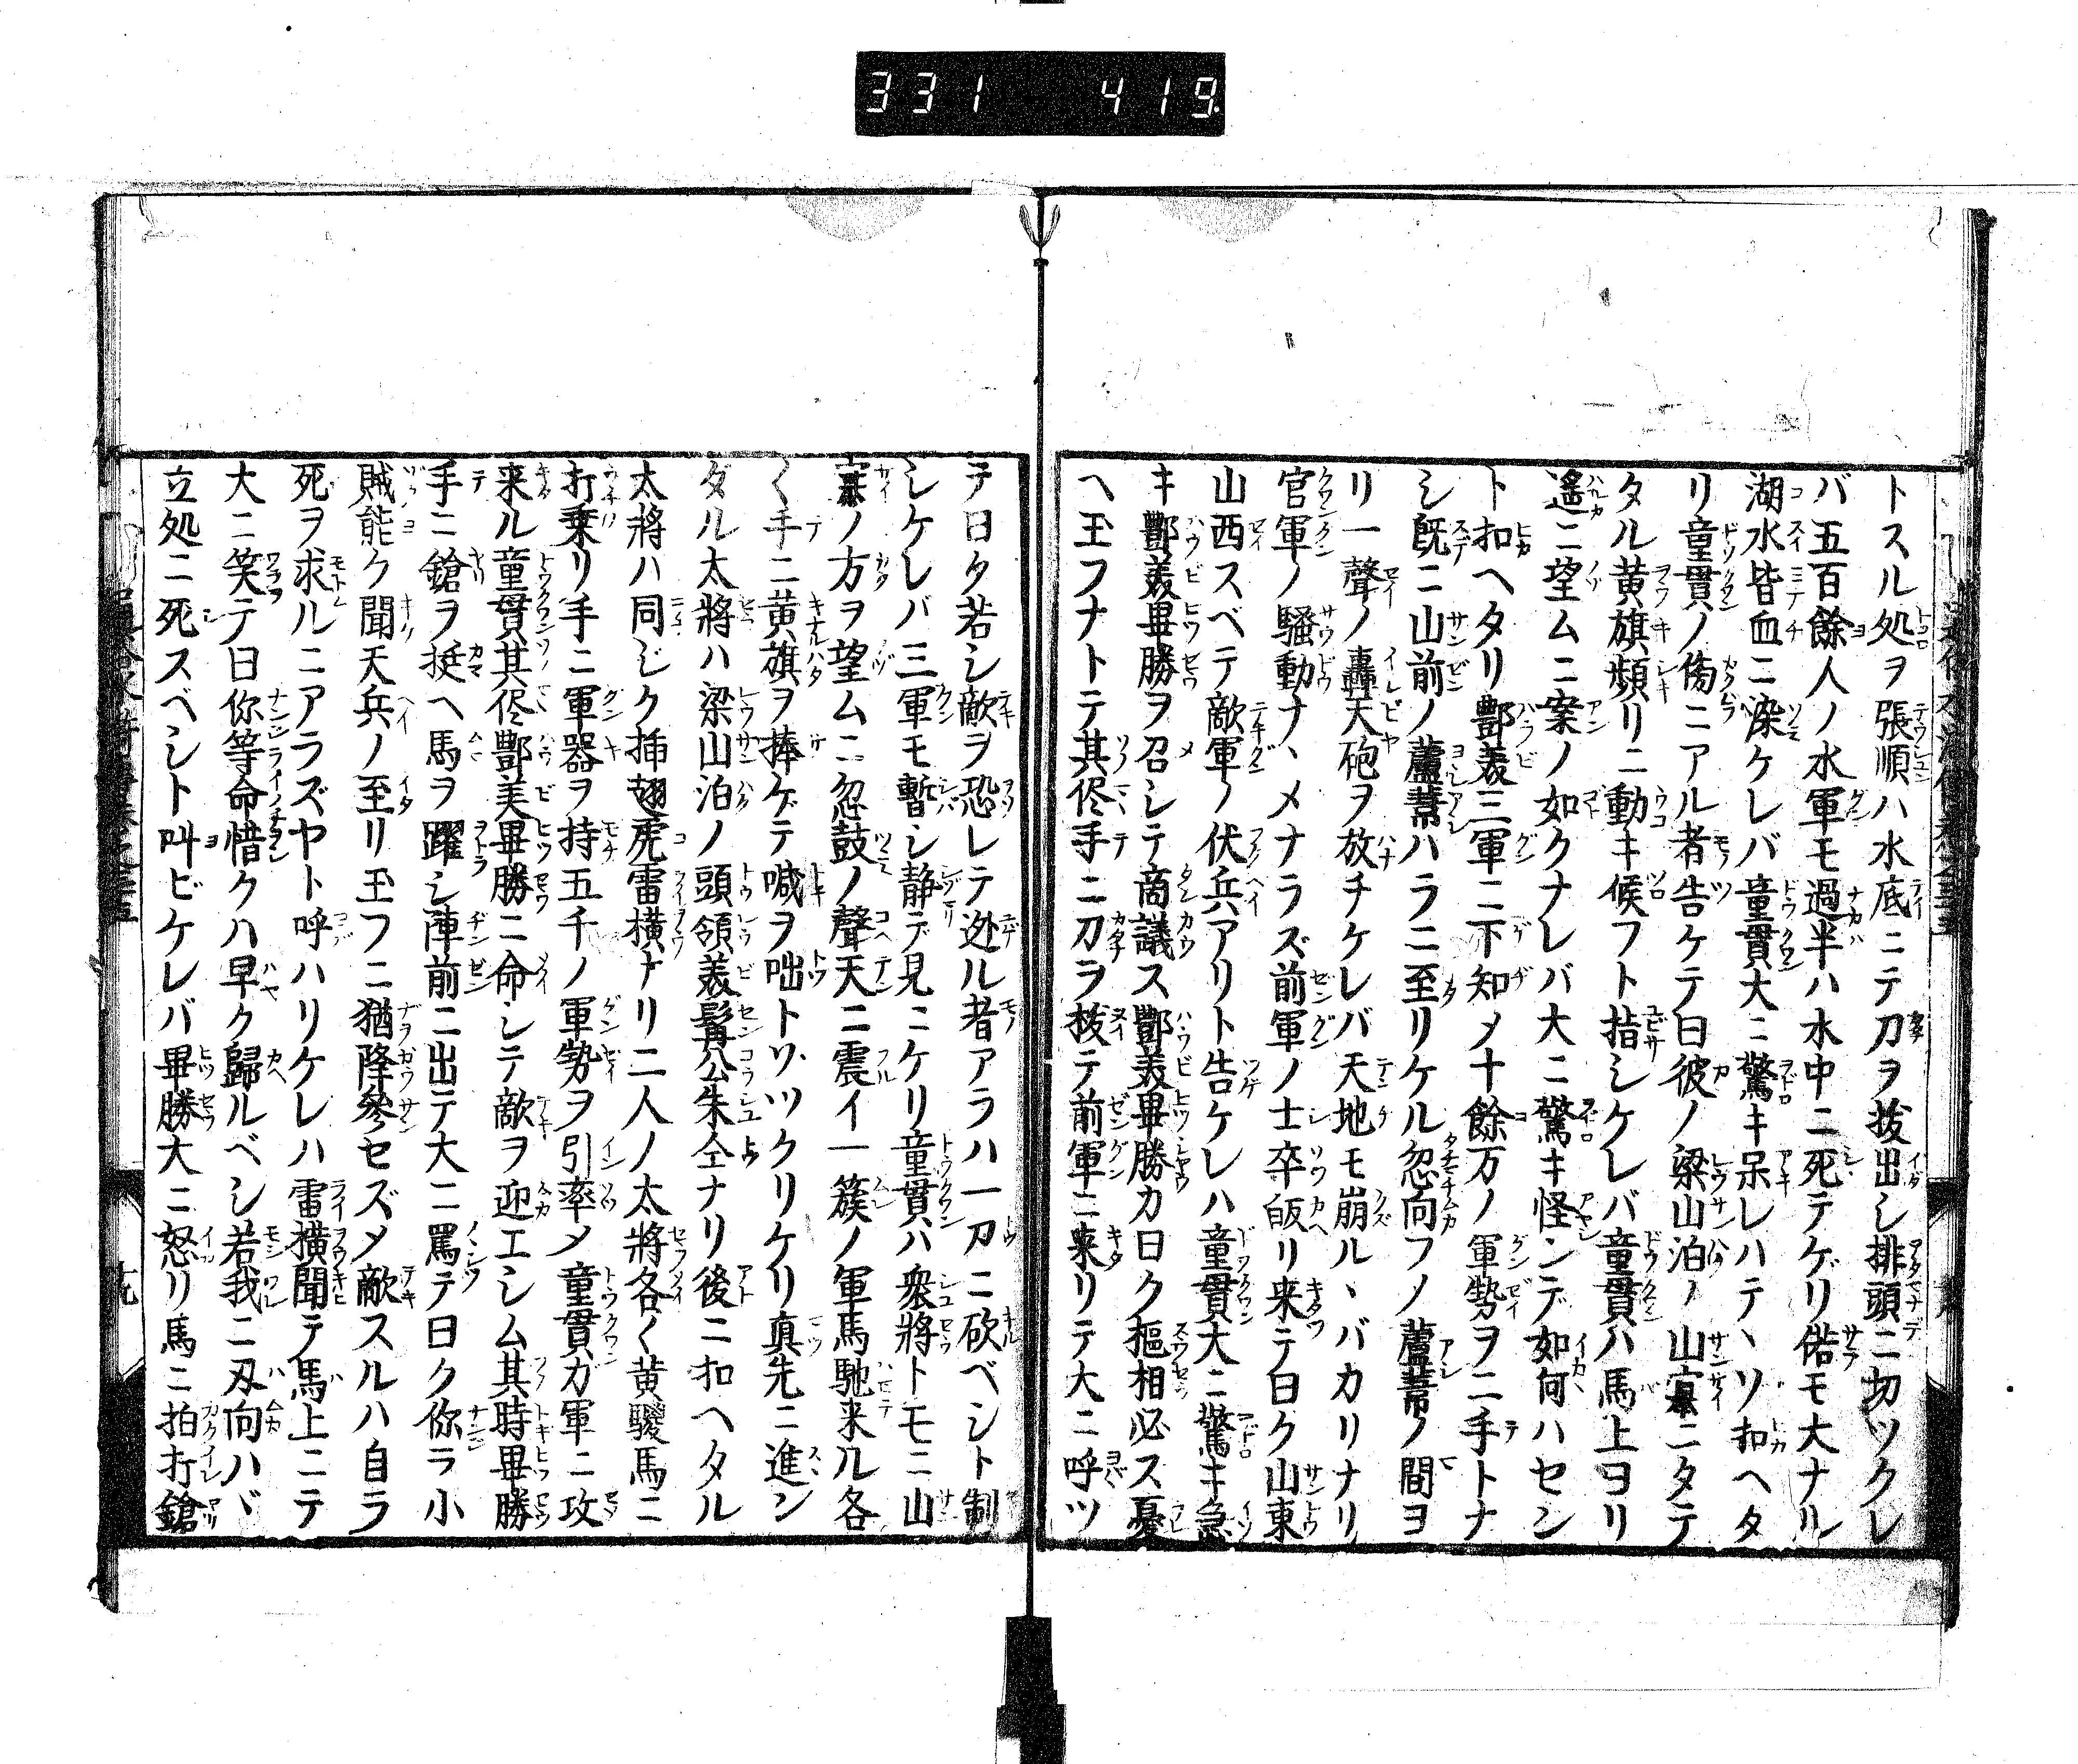 331 419
トスル処ヲ張順ハ水底ニテ刀ヲ抜出シ排頭ニ切ツクレ
バ五百餘人ノ水軍モ過半ハ水中ニ死テゲリ偌モ大ナル
湖水皆血ニ染ケレバ童貫大ニ驚キ呆レハテヽソ扣ヘタ
リ童貫ノ傍ニアル者告ケテ曰彼ノ梁山泊ノ山寨ニタテ
タル黄旗頻リニ動キ候フト指シケレバ童貫ハ馬上ヨリ
遙ニ望ムニ案ノ如クナレバ大ニ驚キ怪ンデ如何ハセン
ト扣ヘタリ酆美三軍ニ下知メ十餘万ノ軍勢ヲ二手トナ
シ既ニ山前ノ蘆葦ハラニ至リケル忽向フノ蘆葦ノ間ヨ
リ一聲ノ轟天砲ヲ放チケレバ天地モ崩ルヽバカリナリ
官軍ノ騒動ナヽメナラズ前軍ノ士卒皈リ来テ曰ク山東
山西スベテ敵軍ノ伏兵アリト告ケレハ童貫大ニ驚キ急
キ酆美畢勝ヲ召シテ商議ス酆美畢勝カ曰ク樞相必ス憂
ヘ玉フナトテ其侭手ニ刀ヲ抜テ前軍ニ来リテ大ニ呼ツ
テ曰タ若シ敵ヲ恐レテ迯ル者アラハ一刀ニ砍ベシト制
シケレバ三軍モ暫シ静デ見ニケリ童貫ハ衆將トモニ山
寨ノ方ヲ望ムニ忽鼓ノ聲天ニ震イ一簇ノ軍馬馳来ル各
〱手ニ黄旗ヲ捧ゲテ喊ヲ咄トツヽクリケリ真先ニ進ン
ダル太將ハ梁山泊ノ頭領美髯公朱仝ナリ後ニ扣ヘタル
太將ハ同ジク挿翅虎雷横ナリ二人ノ太將各〱黄驄馬ニ
打乗リ手ニ軍器ヲ持五千ノ軍勢ヲ引率メ童貫カ軍ニ攻
来ル童貫其侭酆美畢勝ニ命シテ敵ヲ迎エシム其時畢勝
手ニ鎗ヲ挺ヘ馬ヲ躍シ陣前ニ出テ大ニ罵テ曰ク你ラ小
賊能ケ聞天兵ノ至リ玉フニ猶降参セズメ敵スルハ自ラ
死ヲ求ルニアラズヤト呼ハリケレハ雷横聞テ馬上ニテ
大ニ笑テ曰你等命惜クハ早ク歸ルベシ若我ニ刃向ハバ
立処ニ死スベシト叫ビケレバ畢勝大ニ怒リ馬ニ拍打鎗